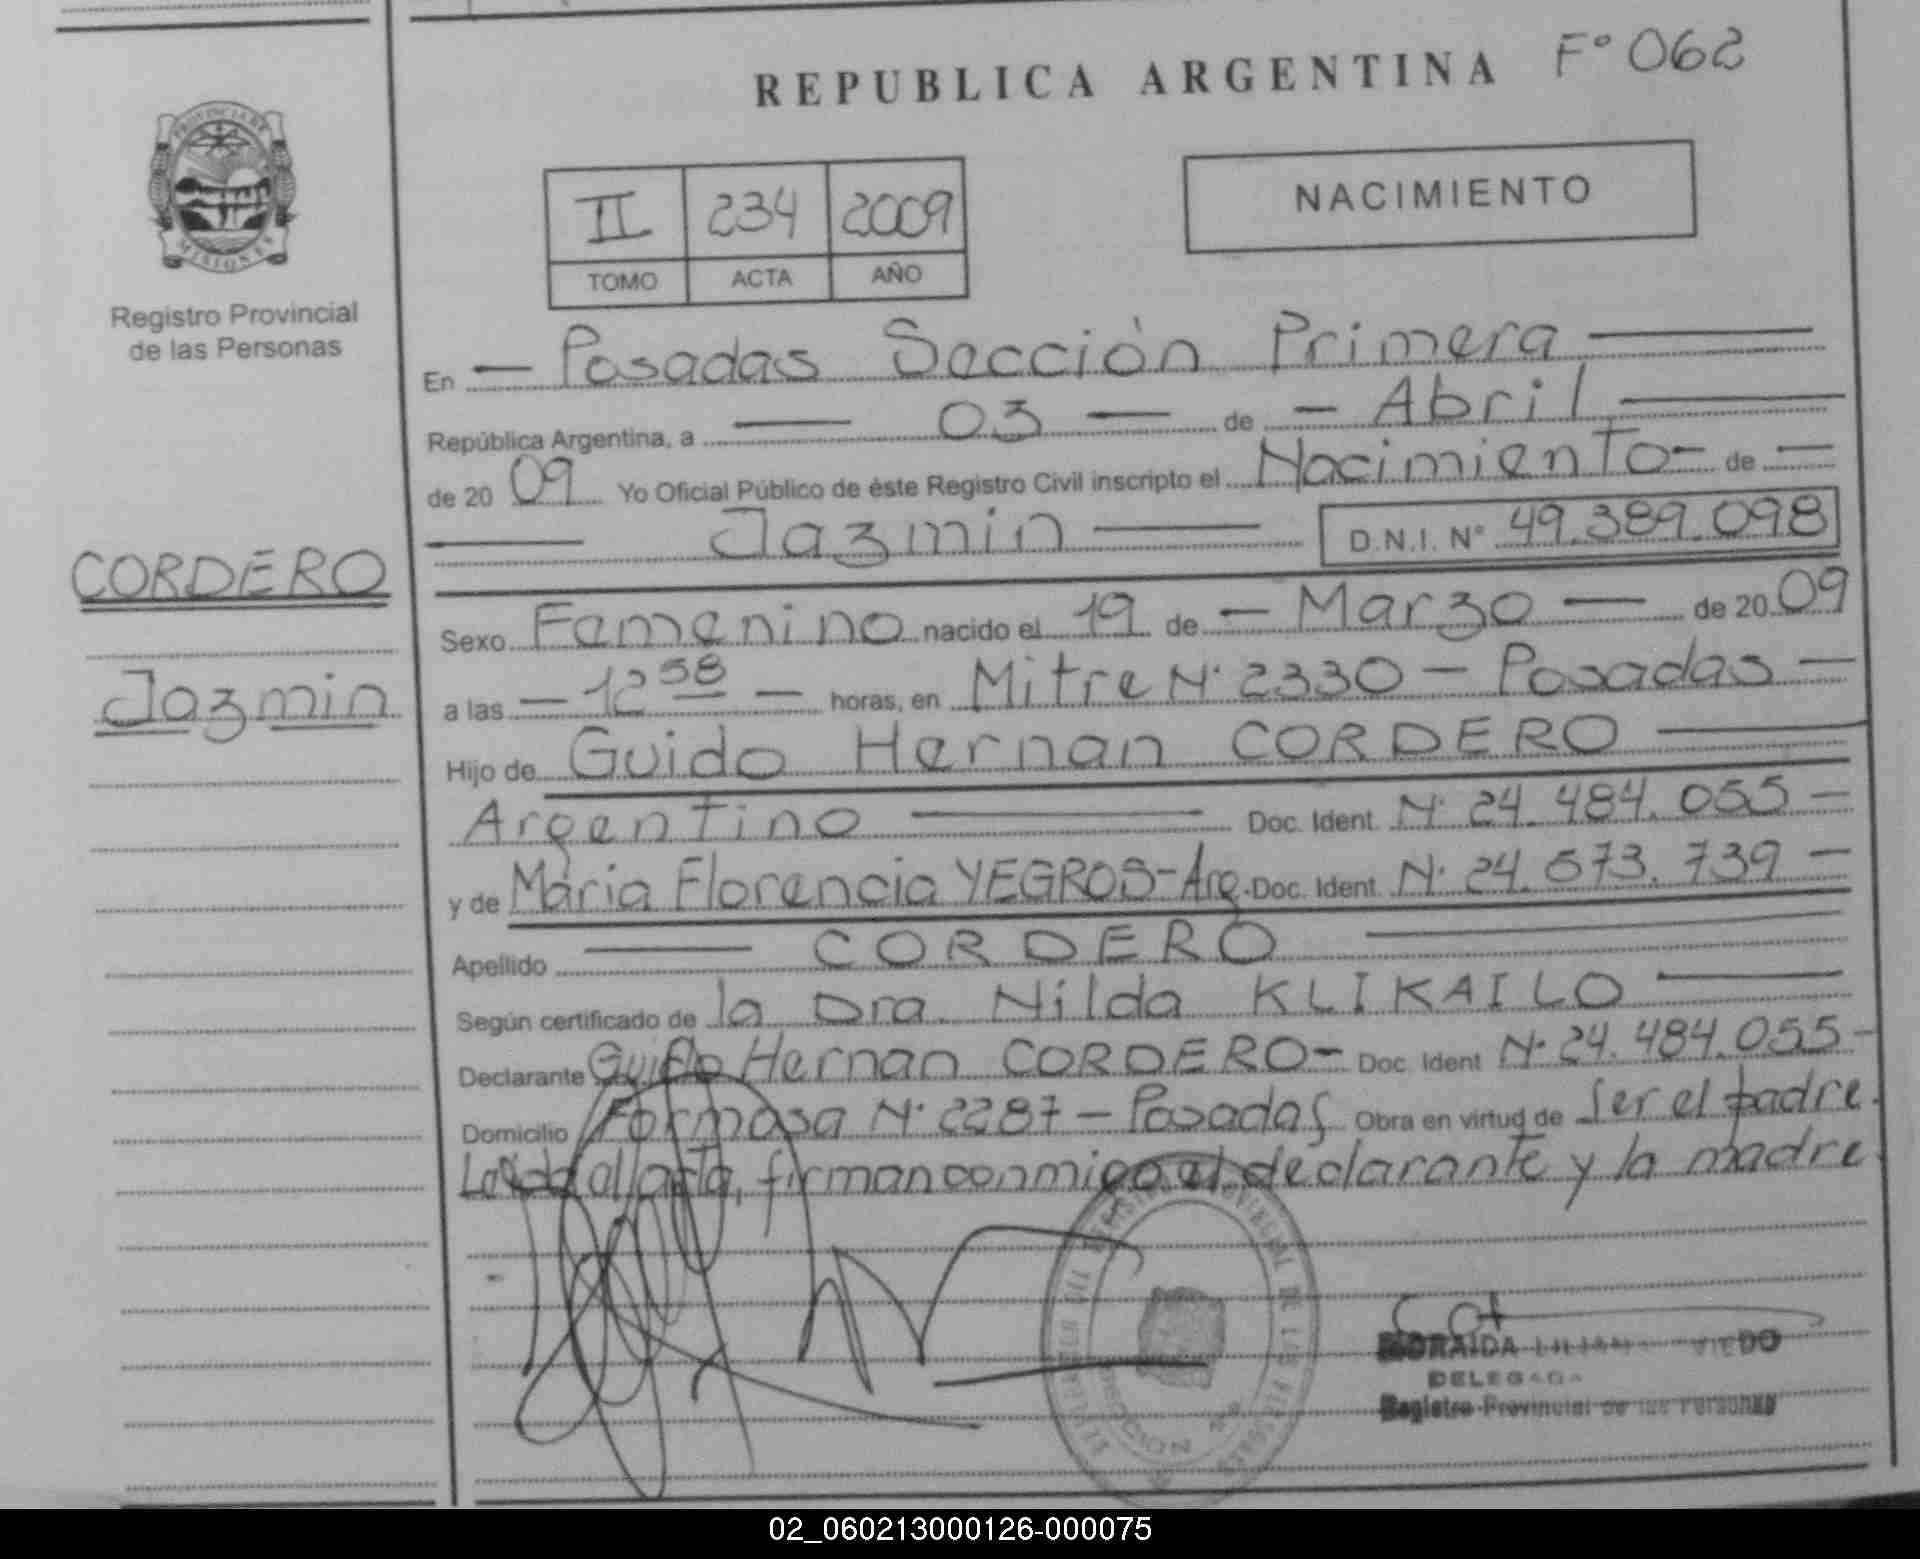 REPUBLICA ARGENTINA Fº 062
PROVINCIA DE
MISIONES
Registro Provincial
de las Personas
II 234 2009
TOMO ACTA AÑO
NACIMIENTO
En — Posadas Sección Primera —
República Argentina, a — 03 — de — Abril —
de 20 09 Yo Oficial Público de éste Registro Civil inscripto el Nacimiento — de —
— Jazmin — D.N.I. Nº 49.389.098
CORDERO
Jazmin
Sexo Femenino nacido el 19 de — Marzo — de 20 09
a las — 12 58 — horas, en Mitre Nº 2330 — Posadas —
Hijo de Guido Hernan CORDERO —
Argentino — Doc. Ident. Nº 24.484.055 —
y de Maria Florencia YEGROS - Arg. Doc. Ident. Nº 24.573.739 —
Apellido — CORDERO —
Según certificado de la Dra. Nilda KLIKAILO —
Declarante Guido Hernan CORDERO - Doc. Ident Nº 24.484.055 -
Domicilio Formosa Nº 2287 - Posadas Obra en virtud de ser el padre.
Leida el acta, firman conmigo el declarante y la madre.
DELEGADA
Registro Provincial de las Personas
02_060213000126-000075